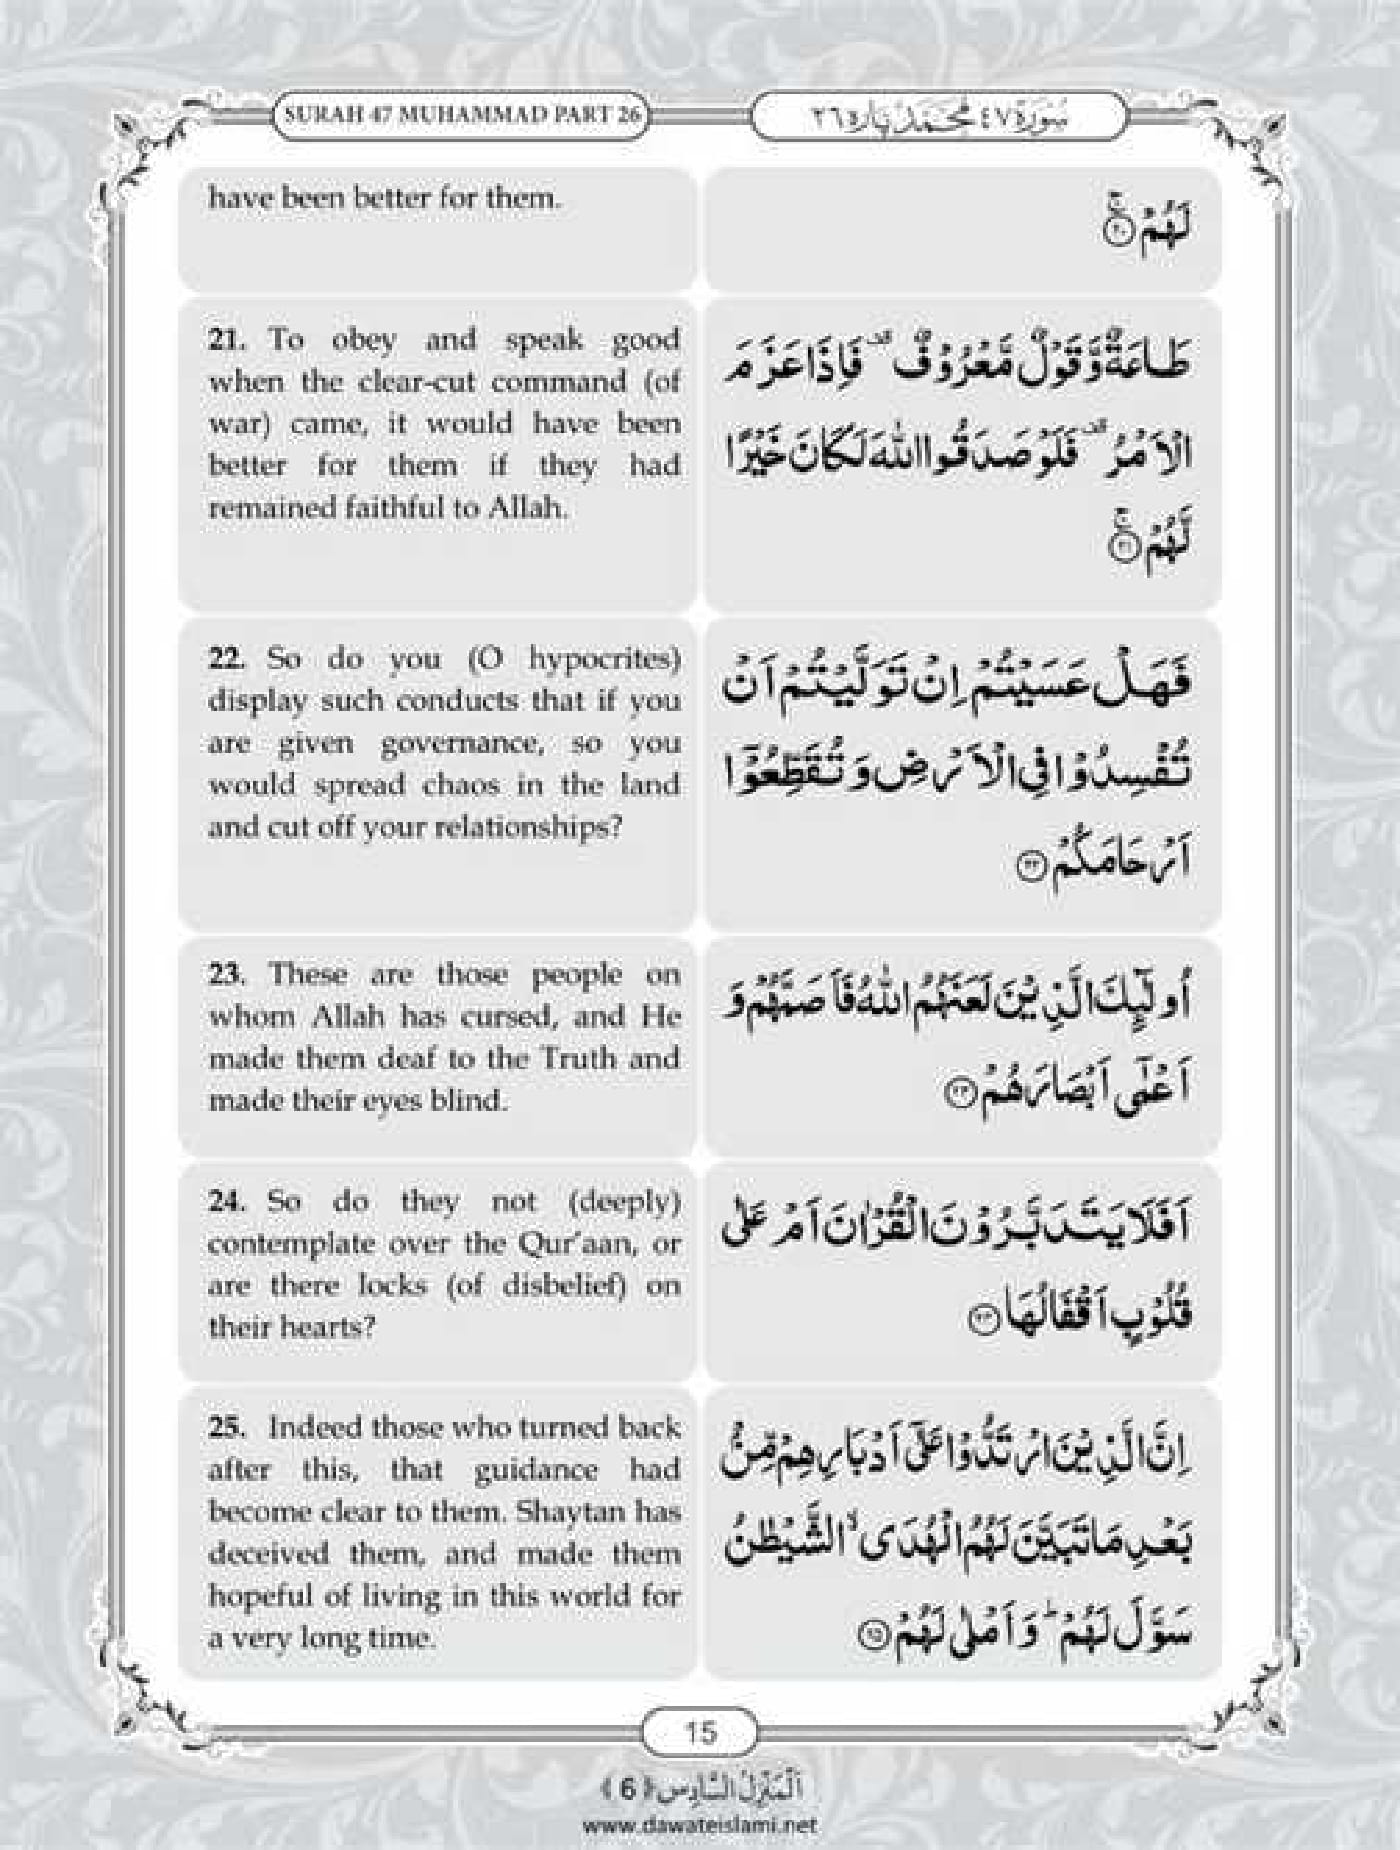 SURAH 47 MUHAMMAD PART 26
سُوْرَةُ ٤٧ مُحَمَّدٌ پَارہ ٢٦
have been better for them.
لَهُمْ ۚ﴿۲۰﴾
21. To obey and speak good
when the clear-cut command (of
war) came, it would have been
better for them if they had
remained faithful to Allah.
طَاعَةٌ وَّقَوْلٌ مَّعْرُوْفٌ ۟ فَاِذَا عَزَمَ
الْاَمْرُ ۟ فَلَوْ صَدَقُوا اللّٰهَ لَكَانَ خَيْرًا
لَّهُمْ ۚ﴿۲۱﴾
22. So do you (O hypocrites)
display such conducts that if you
are given governance, so you
would spread chaos in the land
and cut off your relationships?
فَهَلْ عَسَيْتُمْ اِنْ تَوَلَّيْتُمْ اَنْ
تُفْسِدُوْا فِي الْاَرْضِ وَ تُقَطِّعُوْۤا
اَرْحَامَكُمْ ﴿۲۲﴾
23. These are those people on
whom Allah has cursed, and He
made them deaf to the Truth and
made their eyes blind.
اُولٰٓىِٕكَ الَّذِيْنَ لَعَنَهُمُ اللّٰهُ فَاَصَمَّهُمْ وَ
اَعْمٰۤى اَبْصَارَهُمْ ﴿۲۳﴾
24. So do they not (deeply)
contemplate over the Qur'aan, or
are there locks (of disbelief) on
their hearts?
اَفَلَا يَتَدَبَّرُوْنَ الْقُرْاٰنَ اَمْ عَلٰى
قُلُوْبٍ اَقْفَالُهَا ﴿۲۴﴾
25. Indeed those who turned back
after this, that guidance had
become clear to them. Shaytan has
deceived them, and made them
hopeful of living in this world for
a very long time.
اِنَّ الَّذِيْنَ ارْتَدُّوْا عَلٰۤى اَدْبَارِهِمْ مِّنْۢ
بَعْدِ مَا تَبَيَّنَ لَهُمُ الْهُدَى ۙ الشَّيْطٰنُ
سَوَّلَ لَهُمْ ؕ وَ اَمْلٰى لَهُمْ ﴿۲۵﴾
15
اَلْمَنْزِلُ السَّادِس ﴿6﴾
www.dawateislami.net